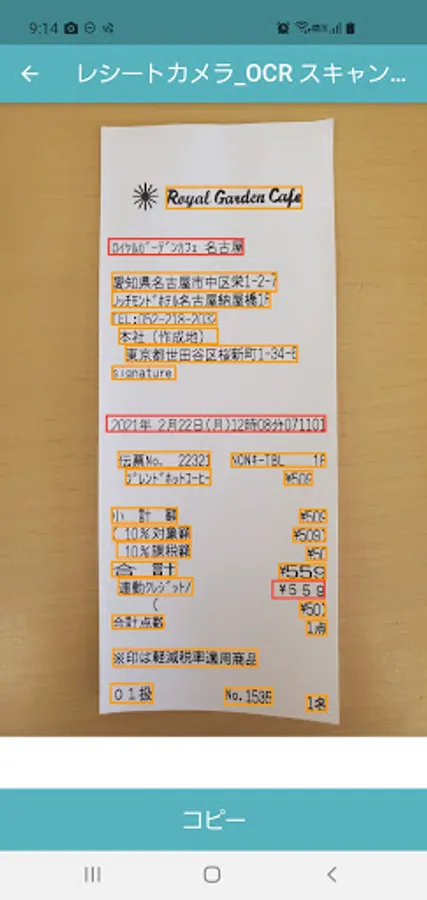 9:14
レシートカメラ_OCR スキャン...
Royal Garden Cafe
ロイヤルガーデンカフェ 名古屋
愛知県名古屋市中区栄1-2-7
リッチモンドホテル名古屋納屋橋1F
TEL:052-218-2032
本社 (作成地)
東京都世田谷区桜新町1-34-6
signature
2021年 2月22日(月)12時08分071101
伝票No. 22321 NONキ-TBL 1F
ブレンドホットコーヒー ¥509
小 計 額 ¥509
( 10%対象額 ¥509)
10%課税額 ¥50
合 計 ¥559
連動クレジット/ ¥559
( ¥50)
合計点数 1点
※印は軽減税率適用商品
01扱 No.1535 1名
コピー